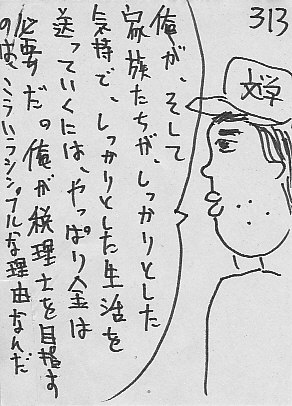 313
文学
俺が、そして
家族たちが、しっかりとした
気持で、しっかりとした生活を
送っていくには、やっぱり金は
必要だ。俺が税理士を目指す
のは、こういうシンプルな理由なんだ